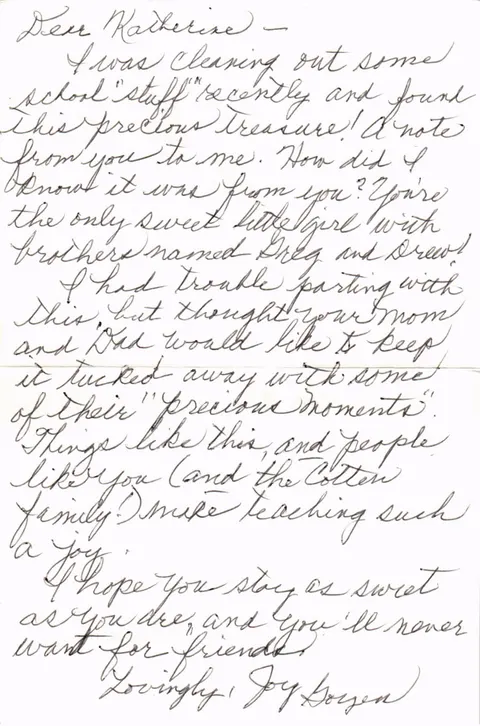 Dear Katherine —
I was cleaning out some
school "stuff" recently and found
this precious treasure! A note
from you to me. How did I
know it was from you? You're
the only sweet little girl with
brothers named Greg and Drew!
I had trouble parting with
this, but thought your Mom
and Dad would like to keep
it tucked away with some
of their "precious moments".
Things like this, and people
like you (and the Cotten
family!) make teaching such
a joy.
I hope you stay as sweet
as you are, and you'll never
want for "friends.
Lovingly, Joy